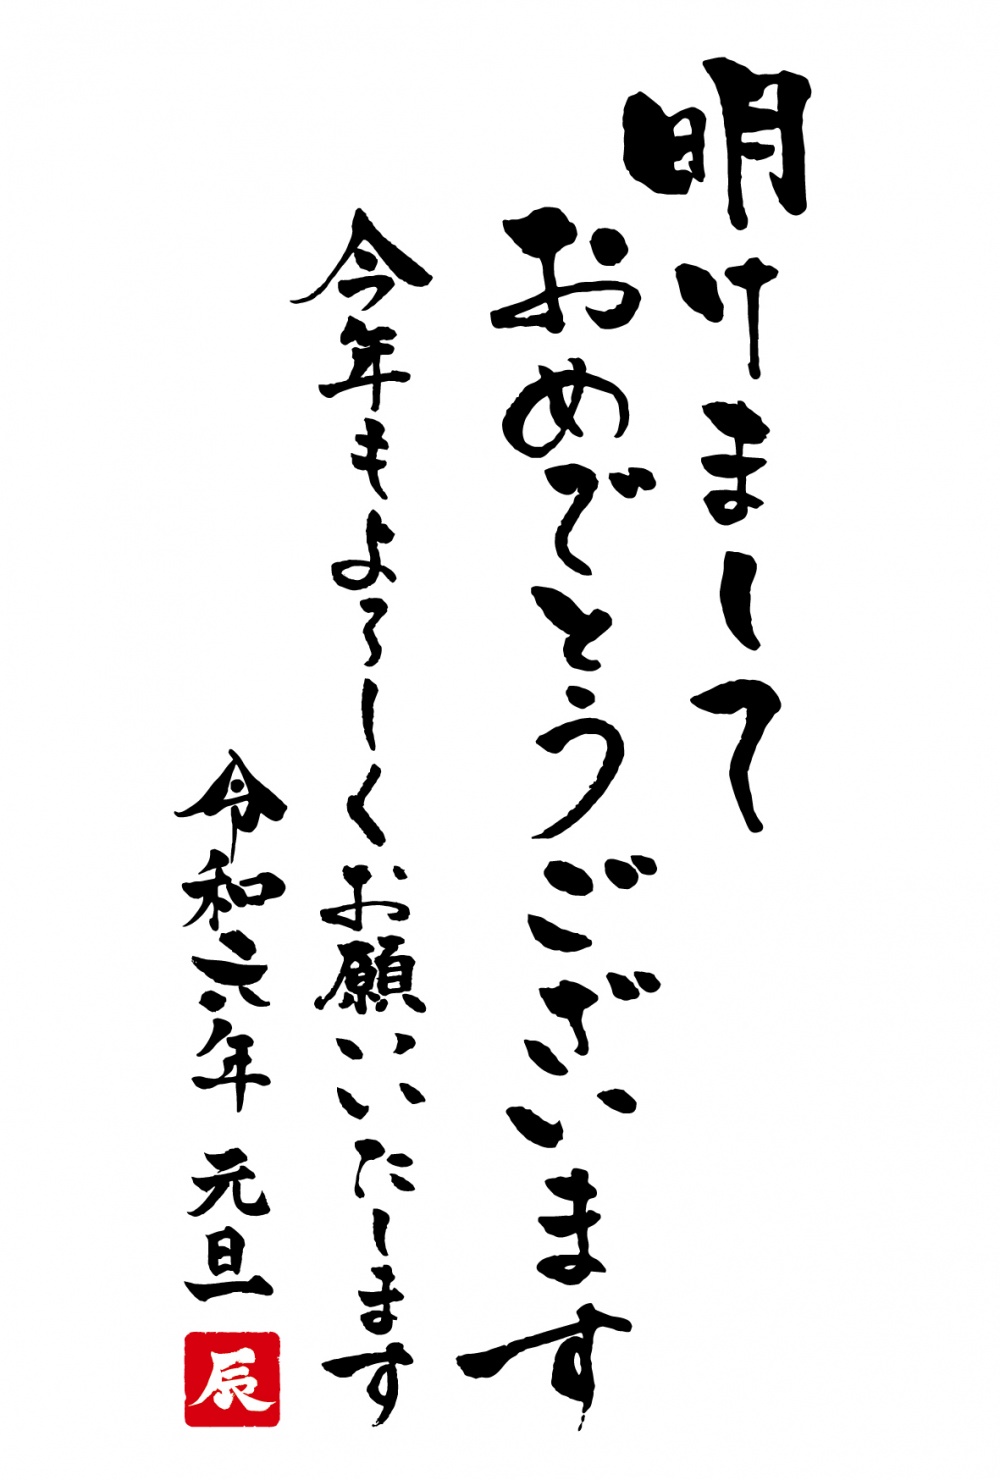 明けまして
おめでとうございます
今年もよろしくお願いいたします
令和六年 元旦
辰